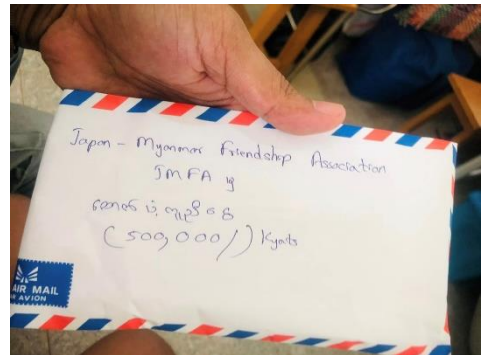 Japan - Myanmar Friendship Association
JMFA မှ
ထောက်ပံ့ကူညီငွေ
(500,000/) Kyats
AIR MAIL
PAR AVION